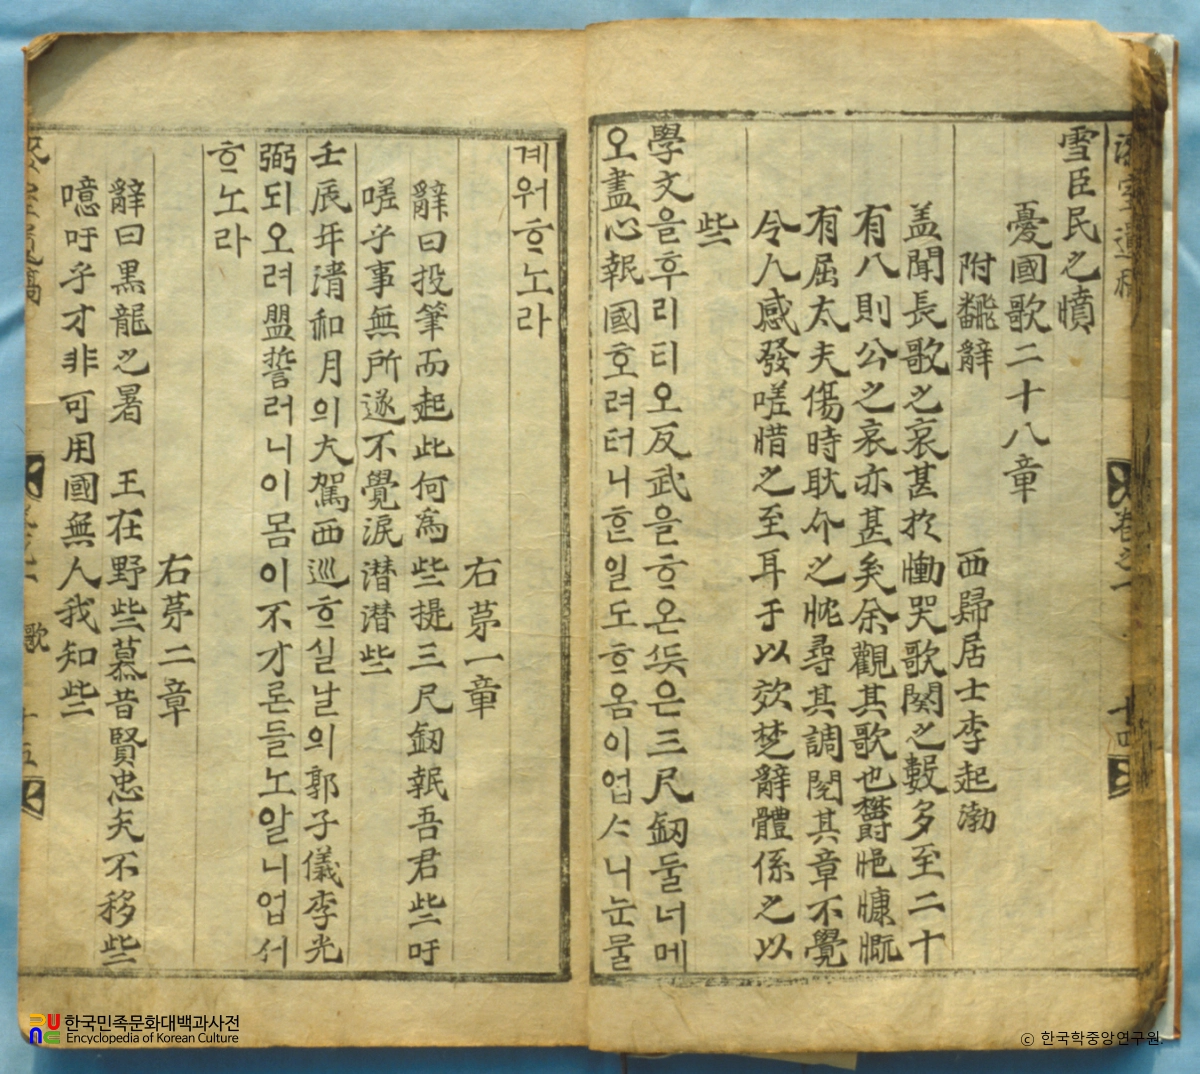 雪臣民之憤
憂國歌二十八章
附飜辭 西歸居士李起渤
盖聞長歌之哀甚於慟哭歌闋之數多至二十
有八則公之哀亦甚矣余觀其歌也欝悒慷慨
有屈大夫傷時耿介之忱尋其調閱其章不覺
令人感發嗟惜之至耳于以效楚辭體係之以
些
學文을후리티오反武을ᄒᆞ온ᄯᅳᆺ은三尺釼둘너메
오盡心報國호려터니ᄒᆞᆫ일도ᄒᆞ옴이업스니눈물
계워ᄒᆞ노라
右苐一章
辭曰投筆而起此何爲些提三尺釼報吾君些吁
嗟乎事無所遂不覺淚潸潸些
壬辰年淸和月의大駕西巡ᄒᆞ실날의郭子儀李光
弼되오려盟誓러니이몸이不才론들노알니업서
ᄒᆞ노라
右苐二章
辭曰黑龍之暑 王在野些慕昔賢忠矢不移些
噫吁乎才非可用國無人我知些
卷之一 十四
歌 十五
한국민족문화대백과사전
Encyclopedia of Korean Culture
ⓒ 한국학중앙연구원.